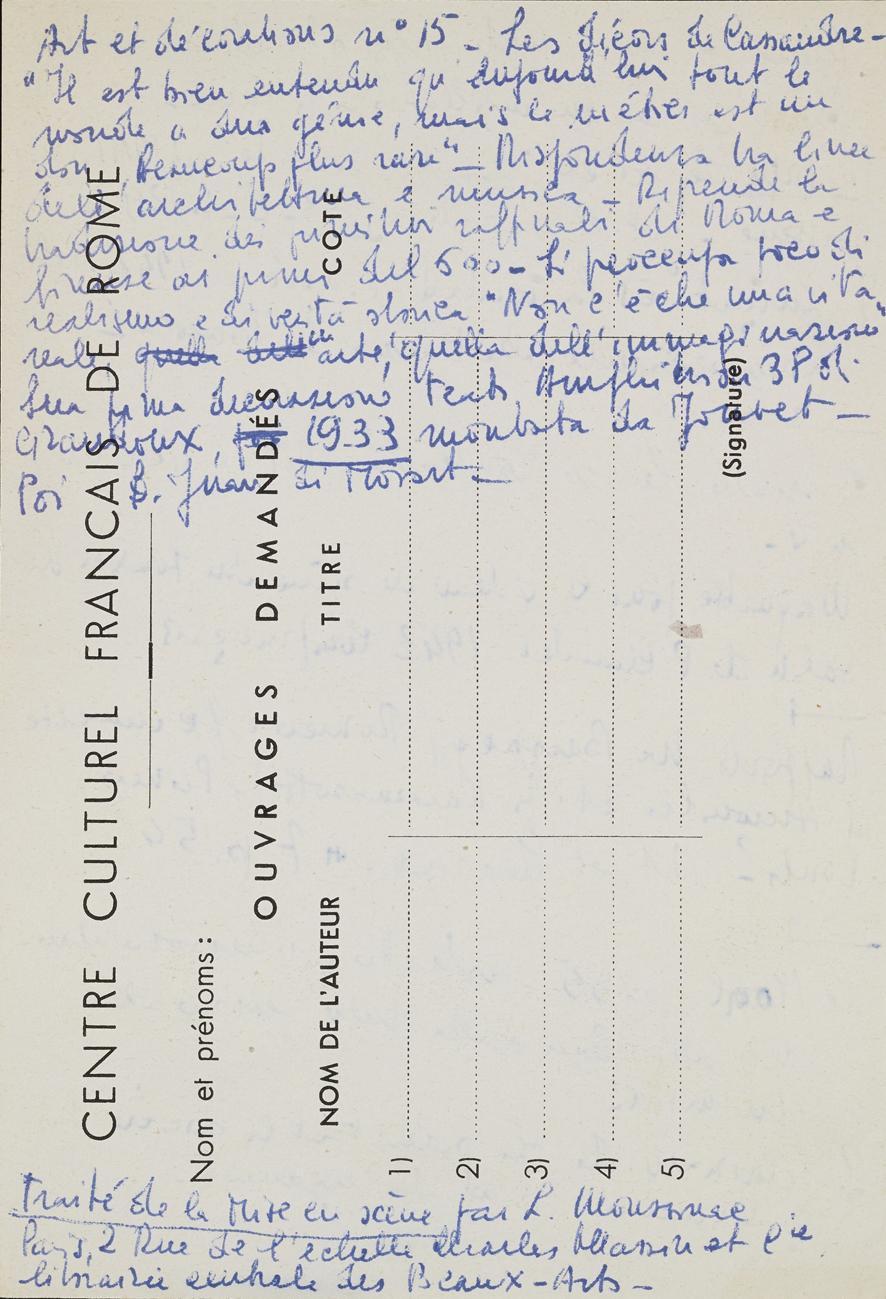 Art et décorations n° 15 - Les décors de Cassandre -
"Il est bien entendu qu'aujourd'hui tout le
monde a du génie, mais le métier est un
don beaucoup plus rare" - Rispondenza tra linee
dell'architettura e musica - Riprende la
tradizione dei pittori raffinati di Roma e
Firenze ai primi del 500 - Si preoccupa poco di
realismo e di verità storica "Non c'è che una vita
reale quella dell' in arte, quella dell'immaginazione"
Sua prima decorazione teat. Amphitryon 38 di
Giraudoux, 1933 montata da Jouvet -
Poi D. Juan di Mozart -
CENTRE CULTUREL FRANCAIS DE ROME
Nom et prénoms :
OUVRAGES DEMANDÉS
NOM DE L'AUTEUR TITRE COTE
1)
2)
3)
4)
5)
(Signature)
Traité de la Mise en scène par L. Moussinac
Paris, 2 Rue de l'échelle Charles Massin et Cie
librairie centrale des Beaux-Arts -